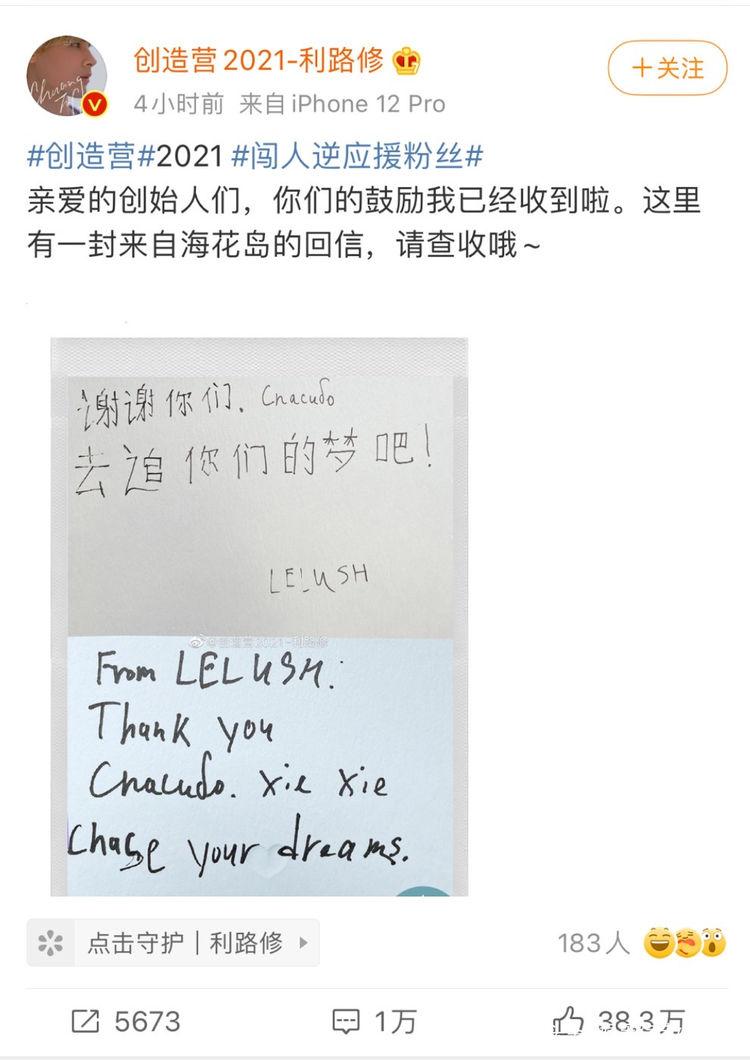 创造营2021-利路修
4小时前 来自 iPhone 12 Pro
+关注
#创造营#2021 #闯人逆应援粉丝#
亲爱的创始人们，你们的鼓励我已经收到啦。这里
有一封来自海花岛的回信，请查收哦～
谢谢你们. Спасибо
去追你们的梦吧！
LELUSH
@创造营2021-利路修
From LELUSH:
Thank you
Спасибо. Xie Xie
Chase your dreams.
点击守护 | 利路修
183人
5673
1万
38.3万